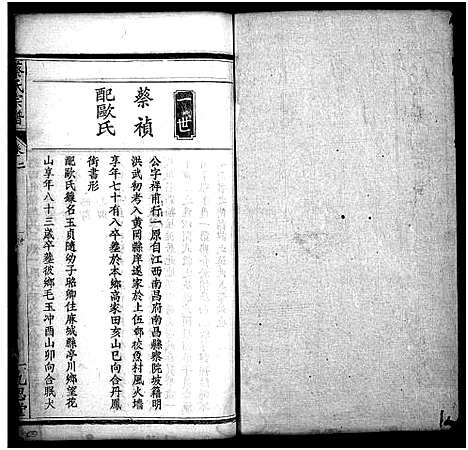 一世
蔡禎
配歐氏
公字祥甫行一原自江西南昌府南昌縣察院坡籍明
洪武初考入黃岡縣庠遂家於上伍鄉校魚村風火墻
享年七十有八卒塟於本鄉高家田亥山巳向合丹鳳
銜書形
配歐氏鏝名玉貞隨幼子駱卿住麻城縣亭川鄉望花
山享年八十三歲卒塟彼鄉毛玉冲酉山卯向合眠犬
蔡氏宗譜